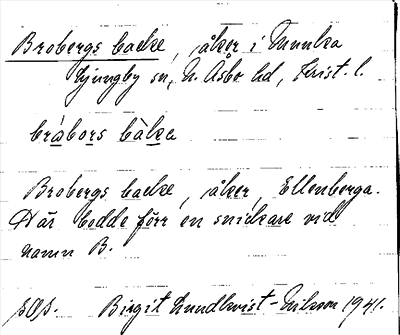 Brobergs backe, åker i Munka
Ljungby sn, N. Åsbo hd, Krist. l.
bråbors bàka
Brobergs backe, åker, Ellenberga.
Här bodde förr en snickare vid
namn B.
sOs. Birgit Lundkvist-Nilsson 1941.